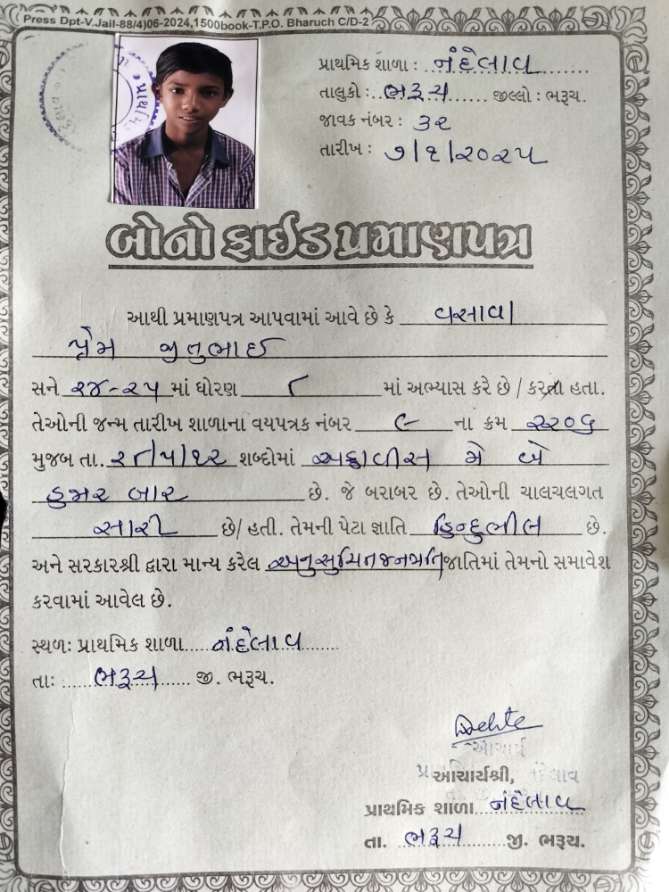 Press Dpt-V.Jail-88/4)06-2024,1500book-T.P.O. Bharuch C/D-2
પ્રાથમિક શાળા : નંદેલાવ
તાલુકો : ભરૂચ જીલ્લો : ભરૂચ.
જાવક નંબર : ૩૨
તારીખ : ૭/૧/૨૦૨૫
બોનો ફાઈડ પ્રમાણપત્ર
આથી પ્રમાણપત્ર આપવામાં આવે છે કે વસાવા
પ્રેમ જીતુભાઈ
સને ૨૪-૨૫ માં ધોરણ ૮ માં અભ્યાસ કરે છે / કરતા હતા.
તેઓની જન્મ તારીખ શાળાના વયપત્રક નંબર ૯ ના ક્રમ
મુજબ તા. ૨૮/૫/૧૨ શબ્દોમાં અઠ્ઠાવીસ મે બે
હજાર બાર છે. જે બરાબર છે. તેઓની ચાલચલગત
સારી છે/ હતી. તેમની પેટા જ્ઞાતિ હિન્દુભીલ છે.
અને સરકારશ્રી દ્વારા માન્ય કરેલ અનુસુચિતજનજાતિ જાતિમાં તેમનો સમાવેશ
કરવામાં આવેલ છે.
સ્થળઃ પ્રાથમિક શાળા નંદેલાવ
તાઃ ભરૂચ જી. ભરૂચ.
આચાર્ય
આચાર્યશ્રી,
પ્રાથમિક શાળા નંદેલાવ
તા. ભરૂચ જી. ભરૂચ.